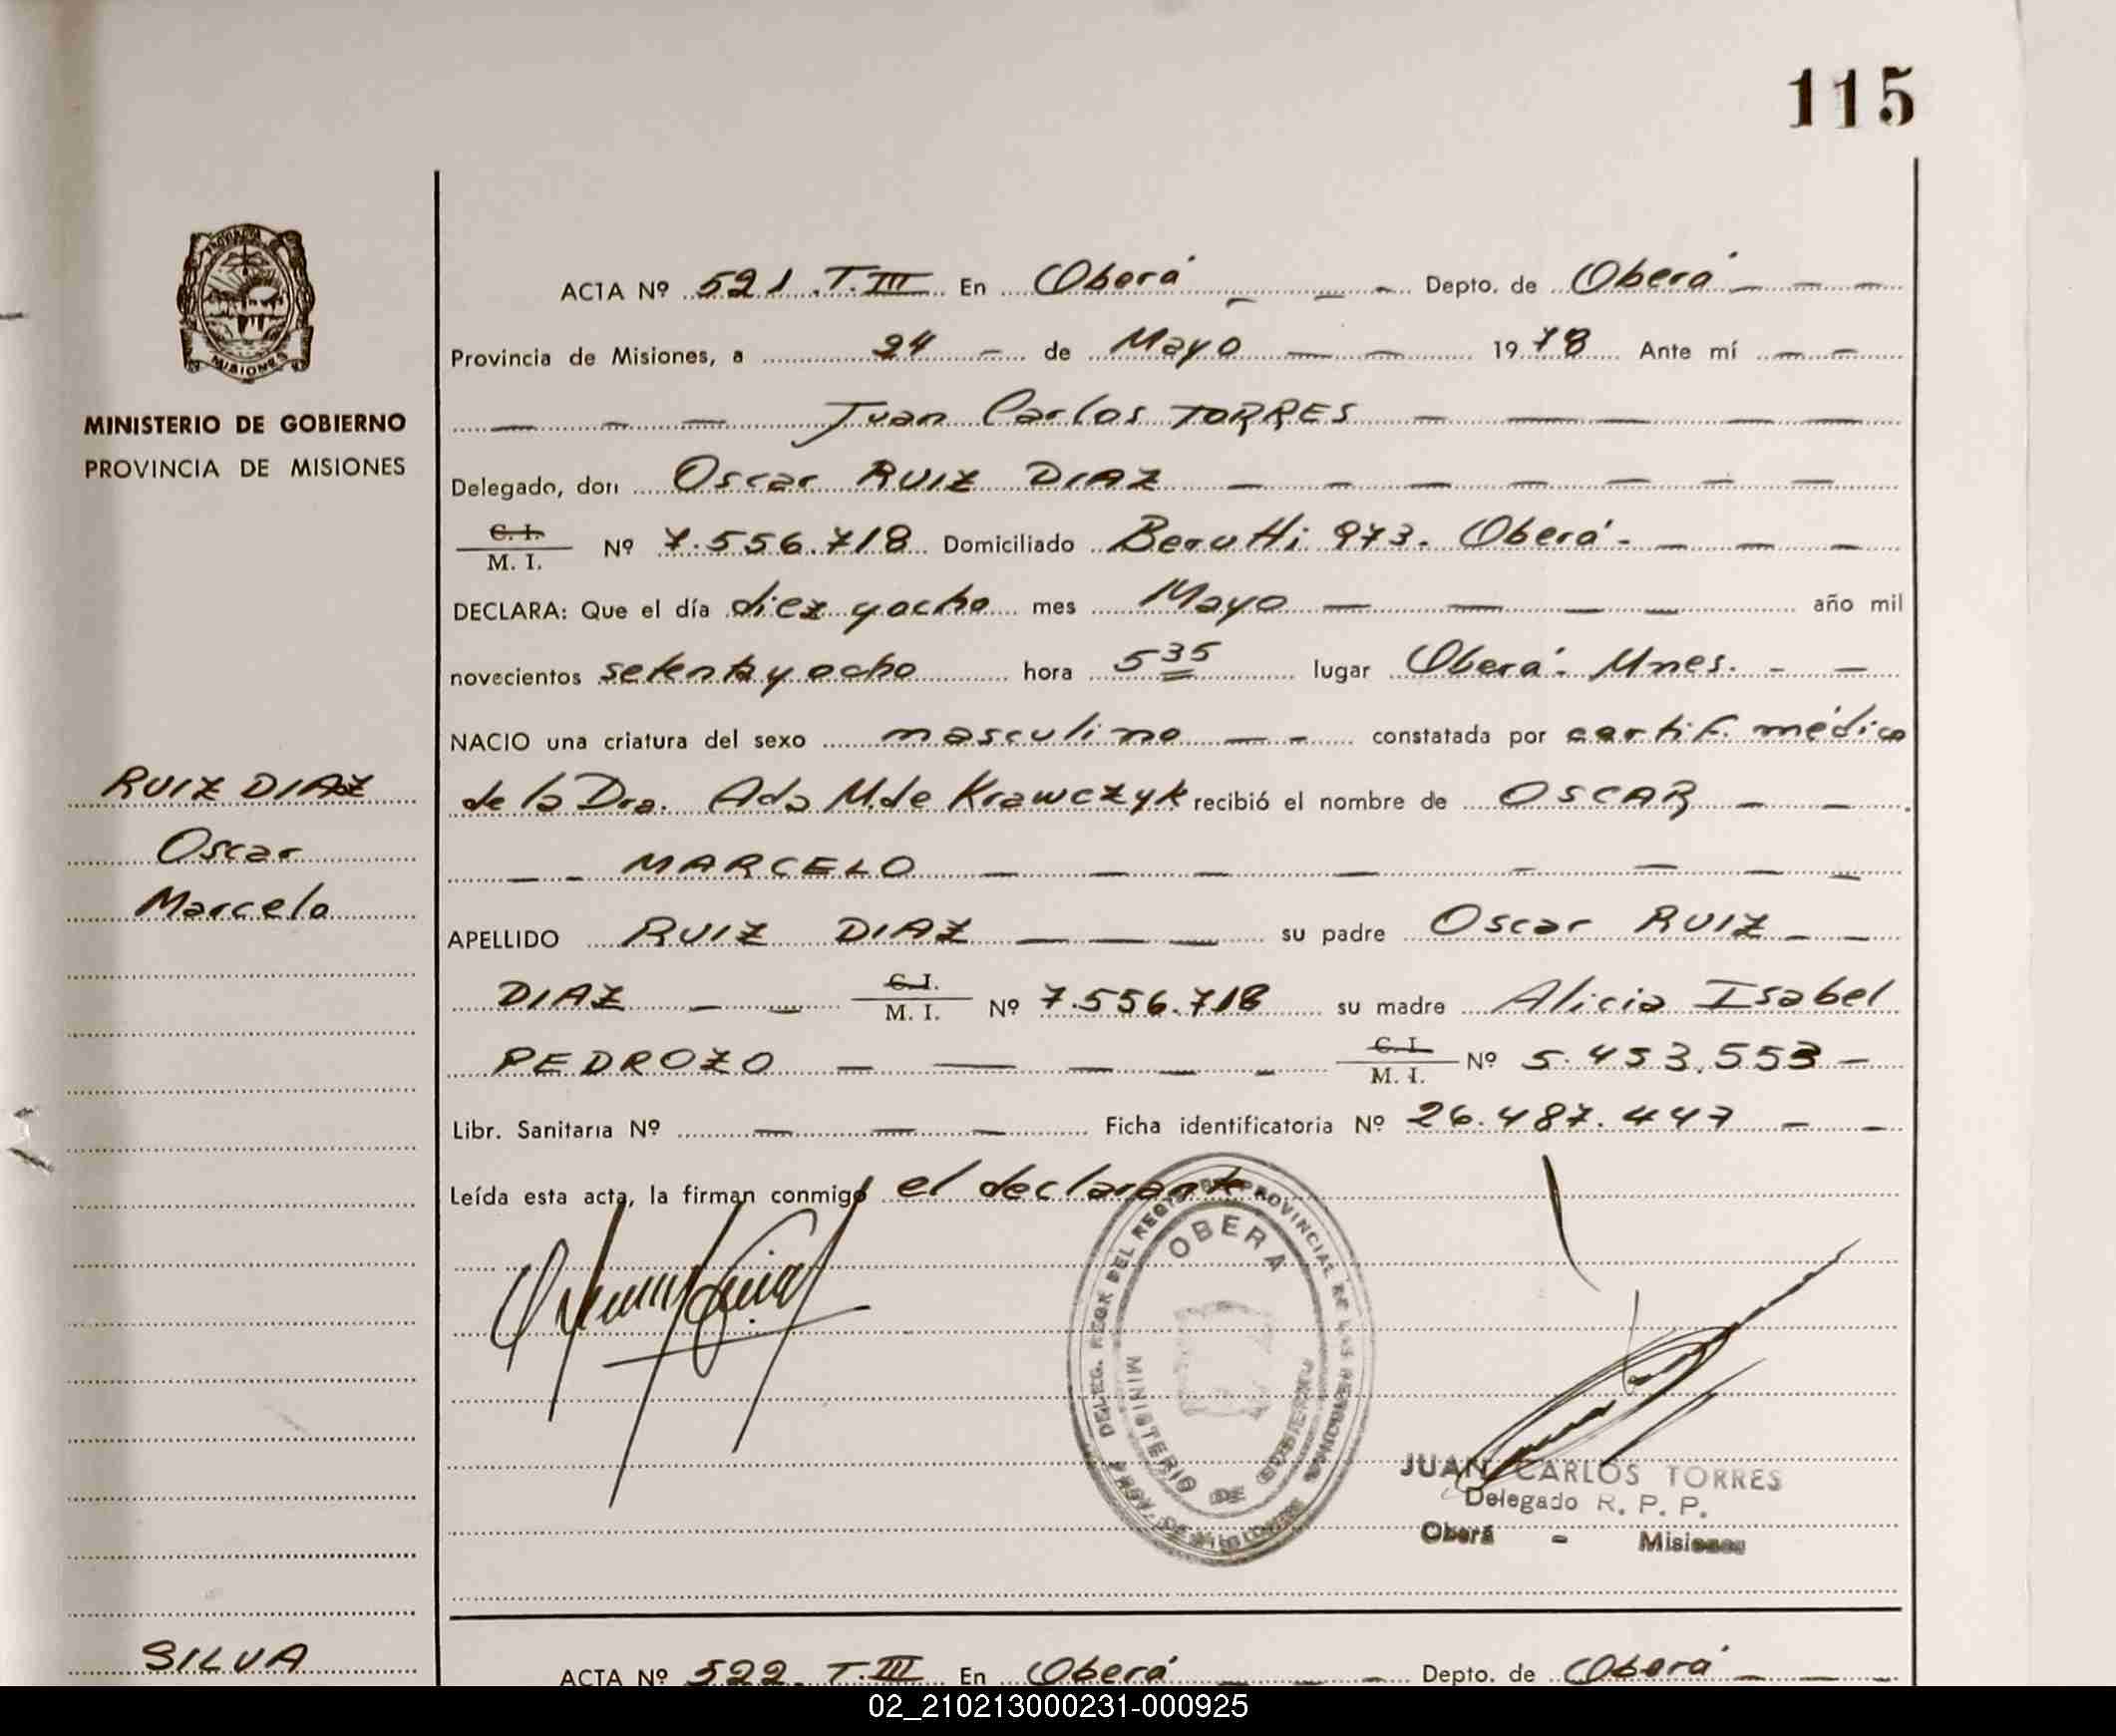 115
MINISTERIO DE GOBIERNO
PROVINCIA DE MISIONES
ACTA Nº 521 T.III En Oberá Depto. de Oberá
Provincia de Misiones, a 24 de Mayo 1978 Ante mí
Juan Carlos TORRES
Delegado, don Oscar RUIZ DIAZ
C. I.
M. I. Nº 7.556.718 Domiciliado Berutti 973. Oberá.
DECLARA: Que el día diez y ocho mes Mayo año mil
novecientos setenta y ocho hora 5 35 lugar Oberá. Mnes.
NACIO una criatura del sexo masculino constatada por certif. médico
RUIZ DIAZ
de la Dra. Ada M. de Krawczyk recibió el nombre de OSCAR
Oscar
MARCELO
Marcelo
APELLIDO RUIZ DIAZ su padre Oscar RUIZ
DIAZ C. I. M. I. Nº 7.556.718 su madre Alicia Isabel
PEDROZO C. I. M. I. Nº 5.453.553
Libr. Sanitaria Nº Ficha identificatoria Nº 26.487.447
Leída esta acta, la firman conmigo el declarante
OBERA
MINISTERIO DE GOBIERNO
JUAN CARLOS TORRES
Delegado R. P. P.
Oberá - Misiones
SILVA
ACTA Nº 522 T.III En Oberá Depto. de Oberá
02_210213000231-000925